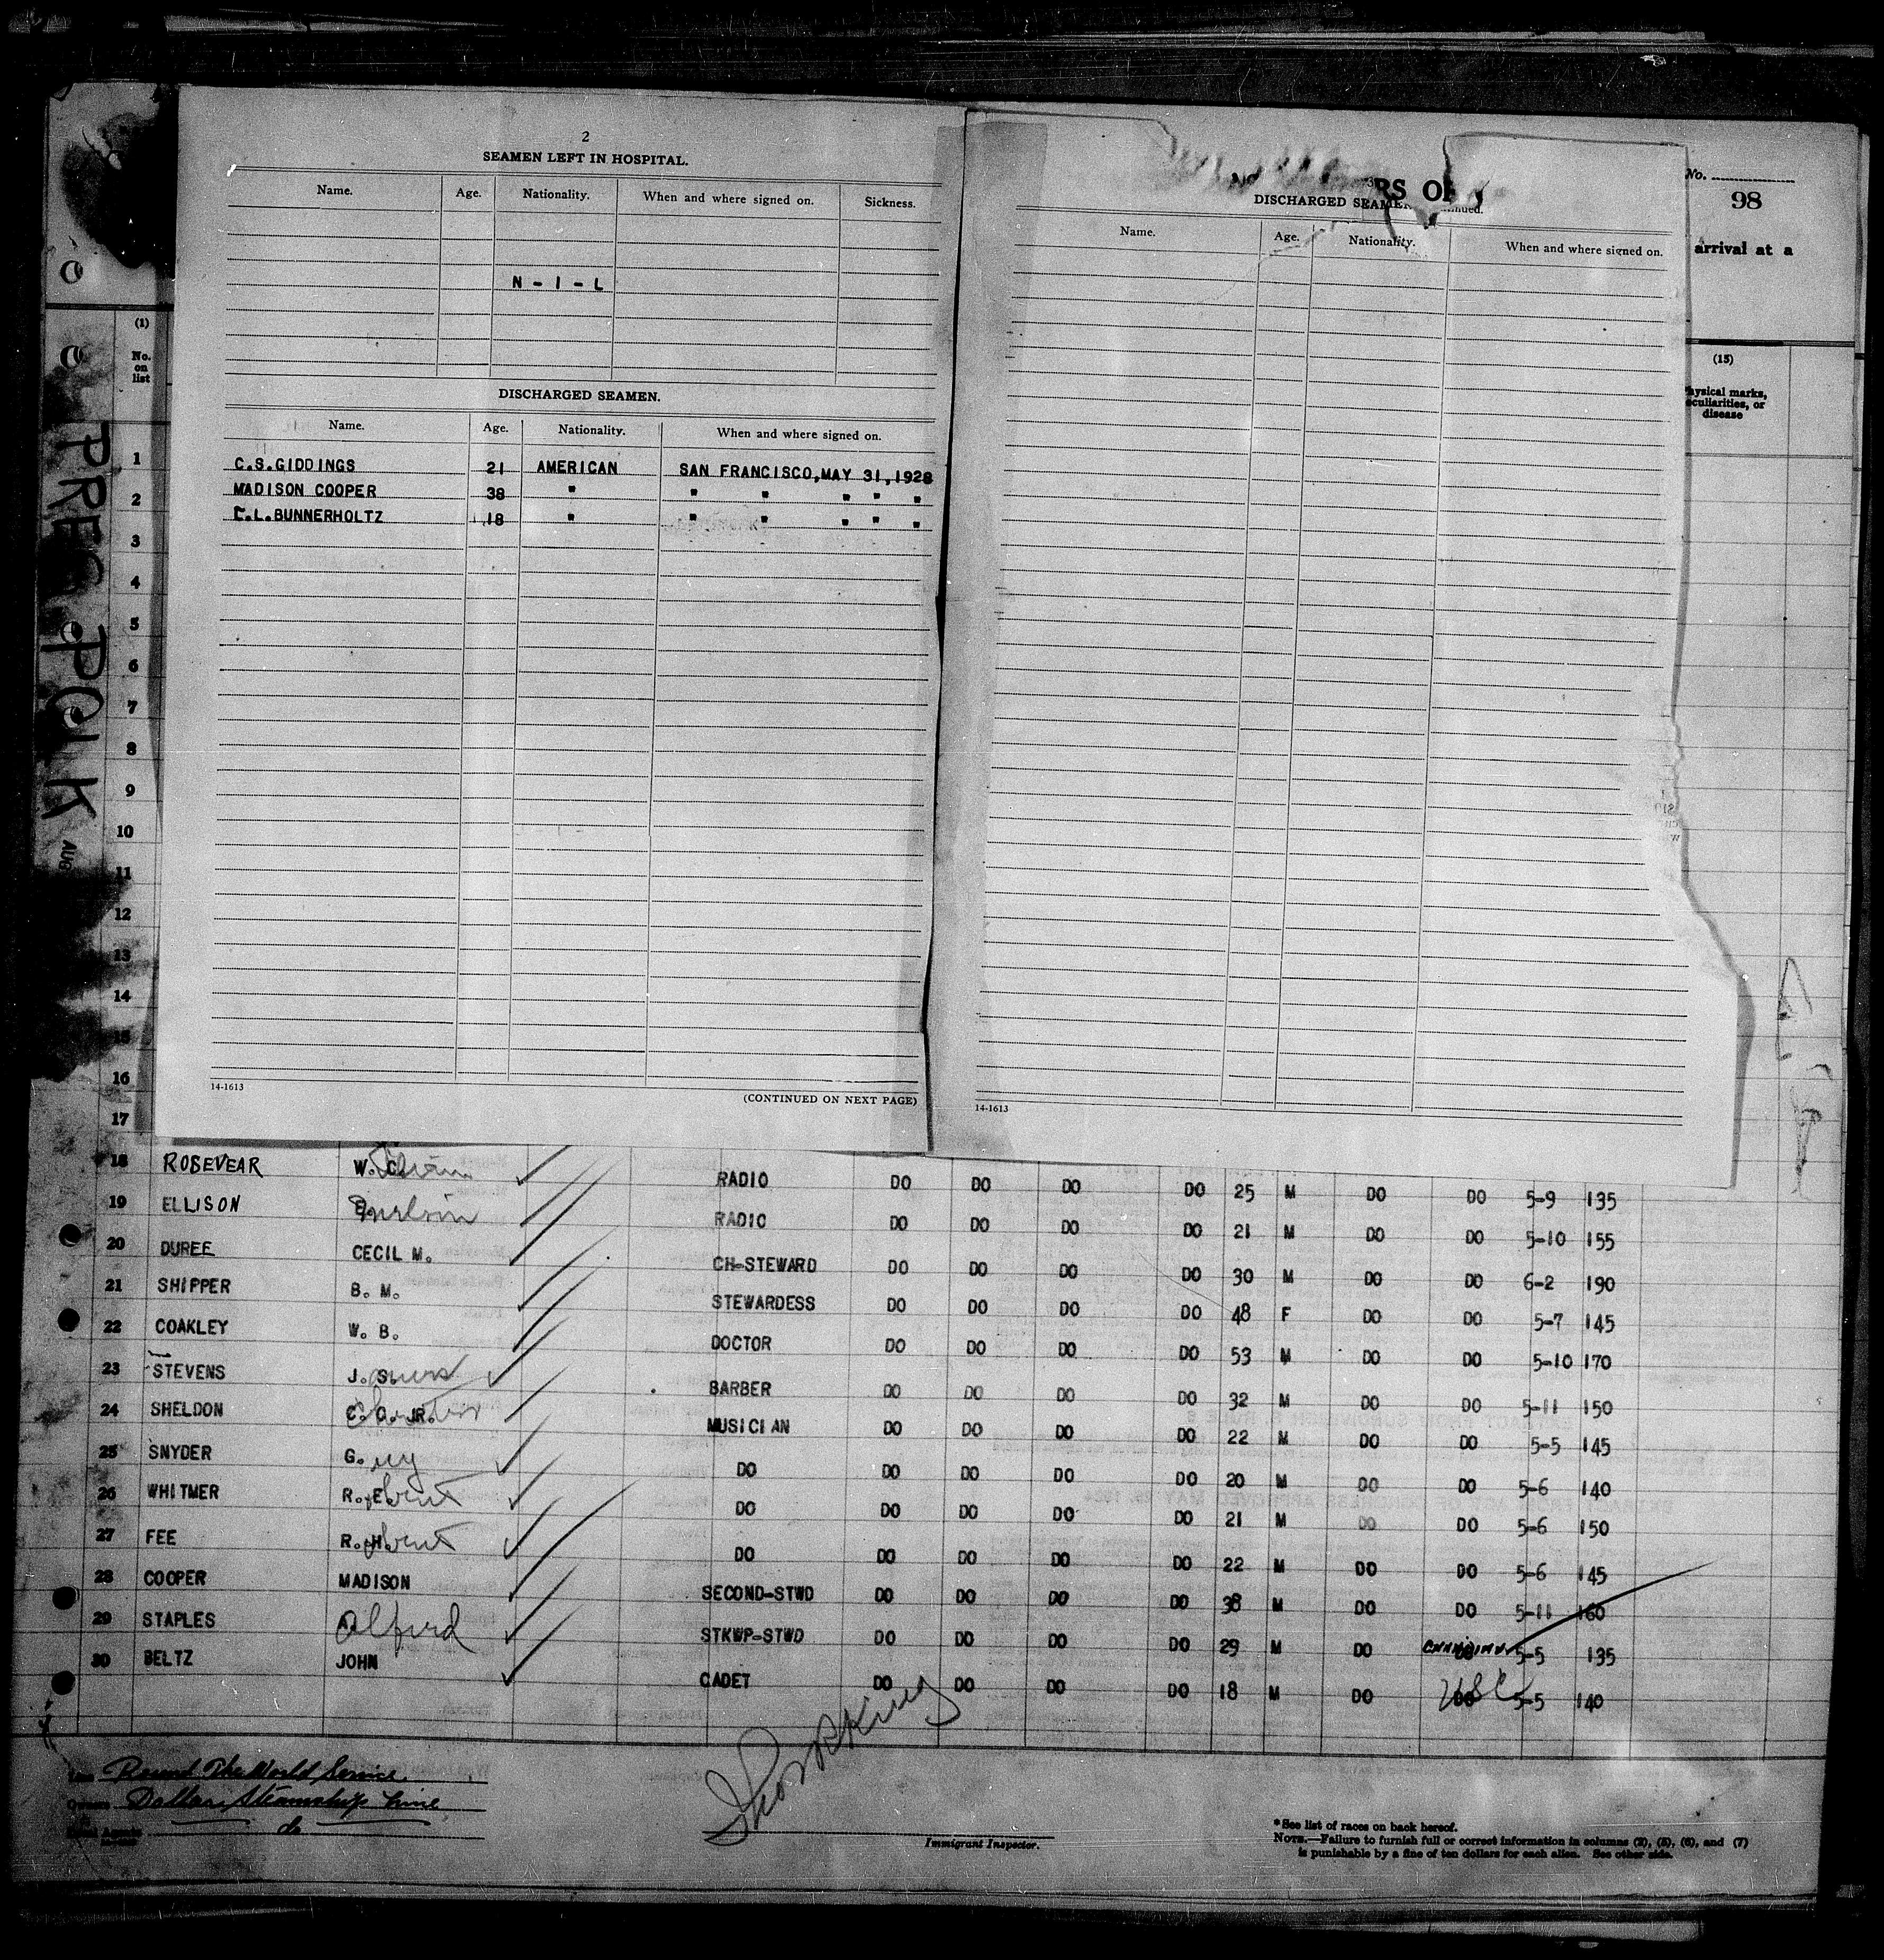 2
SEAMEN LEFT IN HOSPITAL.
Name. Age. Nationality. When and where signed on. Sickness.
N - I - L
DISCHARGED SEAMEN.
Name. Age. Nationality. When and where signed on.
C.S.GIDDINGS 21 AMERICAN SAN FRANCISCO,MAY 31,1928
MADISON COOPER 38 " " " " " "
C.L.BUNNERHOLTZ 18 " " " " " "
14-1613
(CONTINUED ON NEXT PAGE)
3
RS OF
DISCHARGED SEAMEN
Name. Age. Nationality. When and where signed on.
14-1613
No.
98
arrival at a
(15)
hysical marks,
eculiarities, or
disease
PRES POLK
AUG
(1)
No.
on
list
1
2
3
4
5
6
7
8
9
10
11
12
13
14
15
16
17
18 ROSEVEAR W. C. RADIO DO DO DO DO 25 M DO DO 5-9 135
19 ELLISON RADIO DO DO DO DO 21 M DO DO 5-10 155
20 DUREE CECIL M. CH-STEWARD DO DO DO DO 30 M DO DO 6-2 190
21 SHIPPER B. M. STEWARDESS DO DO DO DO 48 F DO DO 5-7 145
22 COAKLEY W. B. DOCTOR DO DO DO DO 53 M DO DO 5-10 170
23 STEVENS J. S. BARBER DO DO DO DO 32 M DO DO 5-11 150
24 SHELDON C. O. JR. MUSICIAN DO DO DO DO 22 M DO DO 5-5 145
25 SNYDER G. DO DO DO DO DO 20 M DO DO 5-6 140
26 WHITMER R. E. DO DO DO DO DO 21 M DO DO 5-6 150
27 FEE R. H. DO DO DO DO DO 22 M DO DO 5-6 145
28 COOPER MADISON SECOND-STWD DO DO DO DO 38 M DO DO 5-11 160
29 STAPLES Alfred STKWP-STWD DO DO DO DO 29 M DO CANADIAN 5-5 135
30 BELTZ JOHN CADET DO DO DO DO 18 M DO USC 5-5 140
Line Round The World Service
Owners Dollar Steamship Line
Local Agents do
Immigrant Inspector.
*See list of races on back hereof.
NOTE.—Failure to furnish full or correct information in columns (2), (5), (6), and (7)
is punishable by a fine of ten dollars for each alien. See other side.